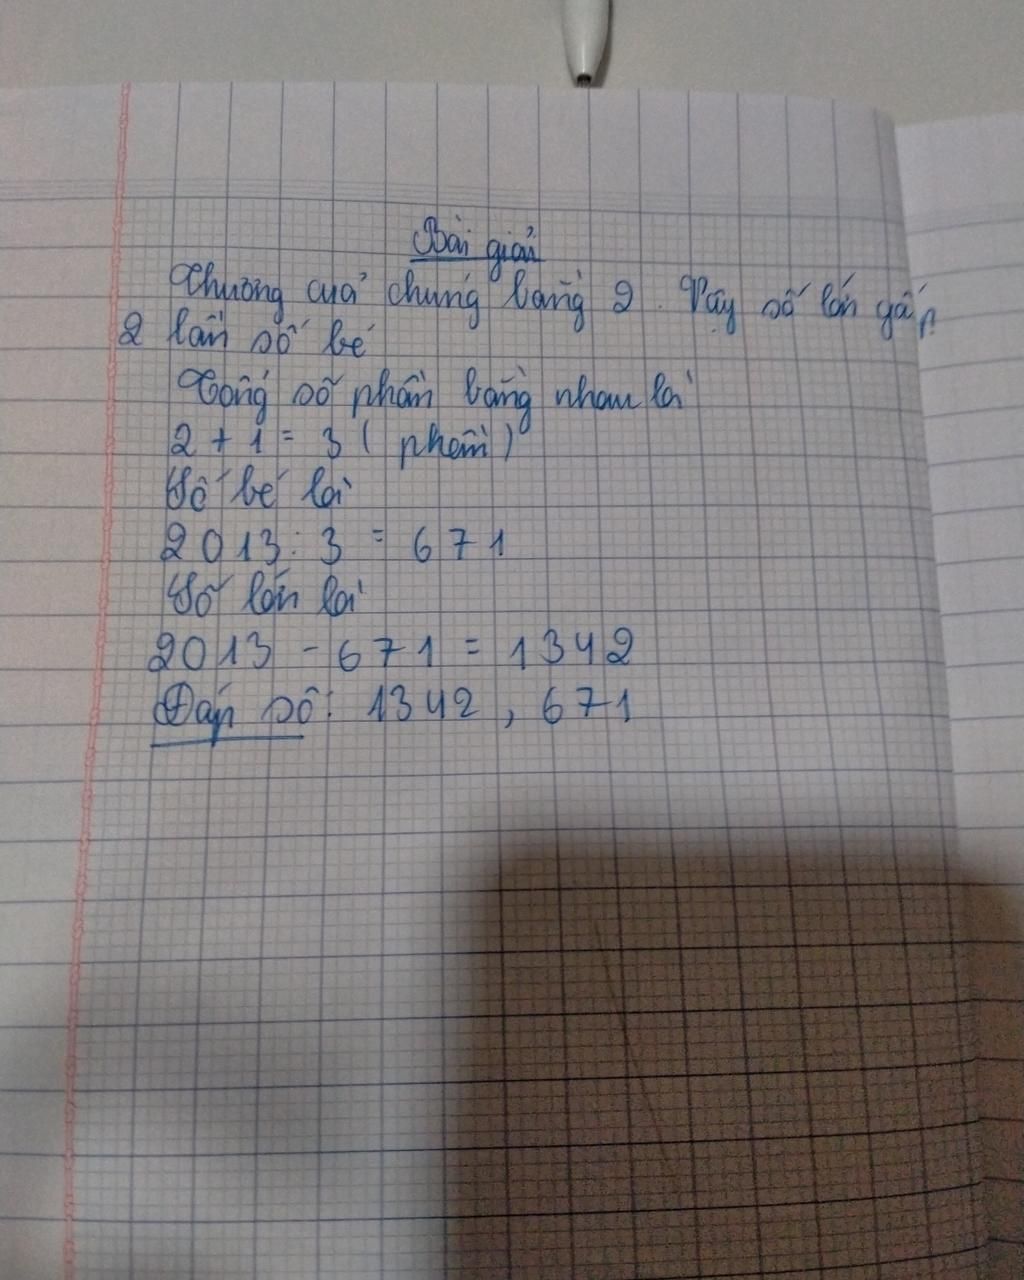 Bài giải
Thương của chúng bằng 2. Vậy số lớn gấp
2 lần số bé
Tổng số phần bằng nhau là
2 + 1 = 3 ( phần )
Số bé là
2013 : 3 = 671
Số lớn là
2013 - 671 = 1342
Đáp số: 1342, 671